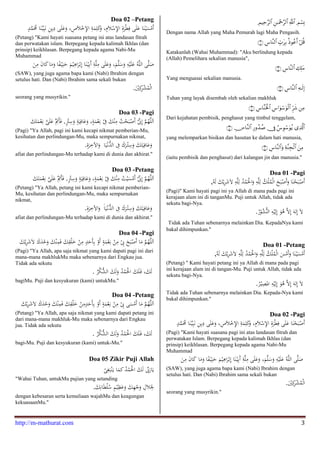 بِسْمِ اللَّهِ الرَّحْمَنِ الرَّحِيمِ
Dengan nama Allah yang Maha Pemurah lagi Maha Pengasih.
قُلْ أَعُوذُ بِرَبِّ النَّاسِ ﴿١﴾
Katakanlah (Wahai Muhammad): "Aku berlindung kepada
(Allah) Pemelihara sekalian manusia",
مَلِكِ النَّاسِ ﴿٢﴾
Yang menguasai sekalian manusia.
إِلَهِ النَّاسِ ﴿٣﴾
Tuhan yang layak disembah oleh sekalian makhluk
مِن شَرِّ الْوَسْوَاسِ الْخَنَّاسِ ﴿٤﴾
Dari kejahatan pembisik, penghasut yang timbul tenggelam,
الَّذِي يُوَسْوِسُ فِي صُدُورِ النَّاسِ ﴿٥﴾
yang melemparkan bisikan dan hasutan ke dalam hati manusia,
مِنَ الْجِنَّةِ وَالنَّاسِ ﴿٦﴾
(iaitu pembisik dan penghasut) dari kalangan jin dan manusia."
Doa 01 - Pagi
أَصْبَحْنَا وَأَصْبَحَ الْمُلْكُ لِلَّهِ وَالْحَمْدُ لِلَّهِ لاَ شَرِيْكَ لَهُ،
(Pagi)" Kami hayati pagi ini ya Allah di mana pada pagi ini
kerajaan alam ini di tanganMu. Puji untuk Allah, tidak ada
sekutu bagi-Nya.
لاَ إِلَهَ إِلاَّ هُوَ وَإِلَيْهِ النُّشُوْرُ.
Tidak ada Tuhan sebenarnya melainkan Dia. KepadaNya kami
bakal dihimpunkan."
Doa 01 -Petang
أَمْسَيْنَا وَأَمْسَى الْمُلْكُ لِلَّهِ وَالْحَمْدُ لِلَّهِ لاَ شَرِيْكَ لَهُ،
(Petang) " Kami hayati petang ini ya Allah di mana pada pagi
ini kerajaan alam ini di tangan-Mu. Puji untuk Allah, tidak ada
sekutu bagi-Nya.
لاَ إِلَهَ إِلاَّ هُوَ وَإِلَيْهِ الْمَصِيْرُ.
Tidak ada Tuhan sebenarnya melainkan Dia. Kepada-Nya kami
bakal dihimpunkan."
Doa 02 -Pagi
أَصْبَحْنَا عَلَى فِطْرَةِ الإِسْلاَمِ، وَكَلِمَةِ الإِخْلاَصِ، وَعَلَى دِيْنِ نَبِيِّنَا مُحَمَّدٍ
(Pagi) "Kami hayati suasana pagi ini atas landasan fitrah dan
perwatakan Islam. Berpegang kepada kalimah Ikhlas (dan
prinsip) keikhlasan. Berpegang kepada agama Nabi-Mu
Muhammad
صَلَّى اللَّهُ عَلَيْهِ وَسَلَّمَ، وَعَلَى مِلَّةِ أَبِيْنَا إِبْرَاهِيْمَ حَنِيْفًا وَمَا كَانَ مِنَ
(SAW), yang juga agama bapa kami (Nabi) Ibrahim dengan
setulus hati. Dan (Nabi) Ibrahim sama sekali bukan
الْمُشْرِكِيْنَ.
seorang yang musyrikin."
Doa 02 -Petang
أَمْسَيْنَا عَلَى فِطْرَةِ الإِسْلاَمِ، وَكَلِمَةِ الإِخْلاَصِ، وَعَلَى دِيْنِ نَبِيِّنَا مُحَمَّدٍ
(Petang) "Kami hayati suasana petang ini atas landasan fitrah
dan perwatakan Islam. Berpegang kepada kalimah Ikhlas (dan
prinsip) keikhlasan. Berpegang kepada agama Nabi-Mu
Muhammad
صَلَّى اللَّهُ عَلَيْهِ وَسَلَّمَ، وَعَلَى مِلَّةِ أَبِيْنَا إِبْرَاهِيْمَ حَنِيْفًا وَمَا كَانَ مِنَ
(SAW), yang juga agama bapa kami (Nabi) Ibrahim dengan
setulus hati. Dan (Nabi) Ibrahim sama sekali bukan
الْمُشْرِكِيْنَ.
seorang yang musyrikin."
Doa 03 -Pagi
اللَّهُمَّ إِنِّي أَصْبَحْتُ مِنْكَ فِي نِعْمَةٍ، وَعَافِيَةٍ وَسِتْرٍ، فَأَتِمَّ عَلَيَّ نِعْمَتَكَ
(Pagi) "Ya Allah, pagi ini kami kecapi nikmat pemberian-Mu,
kesihatan dan perlindungan-Mu, maka sempurnakan nikmat,
وَعَافِيَتَكَ وَسِتْرَكَ فِي الدُّنْيَا وَالآخِرَةِ.
afiat dan perlindungan-Mu terhadap kami di dunia dan akhirat."
Doa 03 -Petang
اللَّهُمَّ إِنِّي أَمْسَيْتُ مِنْكَ فِي نِعْمَةٍ، وَعَافِيَةٍ وَسِتْرٍ، فَأَتِمَّ عَلَيَّ نِعْمَتَكَ
(Petang) "Ya Allah, petang ini kami kecapi nikmat pemberian-
Mu, kesihatan dan perlindungan-Mu, maka sempurnakan
nikmat,
وَعَافِيَتَكَ وَسِتْرَكَ فِي الدُّنْيَا وَالآخِرَةِ.
afiat dan perlindungan-Mu terhadap kami di dunia dan akhirat."
Doa 04 -Pagi
اللَّهُمَّ مَا أَصْبَحَ بِيْ مِنْ نِعْمَةٍ أَوْ بِأَحَدٍ مِنْ خَلْقِكَ فَمِنْكَ وَحْدَكَ لاَ شَرِيْكَ
(Pagi) "Ya Allah, apa saja nikmat yang kami dapati pagi ini dari
mana-mana makhlukMu maka sebenarnya dari Engkau jua.
Tidak ada sekutu
لَكَ، فَلَكَ الْحَمْدُ وَلَكَ الشُّكْرُ.
bagiMu. Puji dan kesyukuran (kami) untukMu."
Doa 04 -Petang
اللَّهُمَّ مَا أَمْسَى بِيْ مِنْ نِعْمَةٍ أَوْ بِأَحَدٍ مِنْ خَلْقِكَ فَمِنْكَ وَحْدَكَ لاَ شَرِيْكَ
(Petang) "Ya Allah, apa saja nikmat yang kami dapati petang ini
dari mana-mana makhluk-Mu maka sebenarnya dari Engkau
jua. Tidak ada sekutu
لَكَ، فَلَكَ الْحَمْدُ وَلَكَ الشُّكْرُ.
bagi-Mu. Puji dan kesyukuran (kami) untuk-Mu."
Doa 05 Zikir Puji Allah
يَا رَبِّ لَكَ الْحَمْدُ كَمَا يَنْبَغِيْ
"Wahai Tuhan, untukMu pujian yang setanding
لِجَلاَلِ وَجْهِكَ وَعَظِيْمِ سُلْطَانِكَ.
dengan kebesaran serta kemuliaan wajahMu dan keagungan
kekuasaanMu."
http://rn-mathurat.com
3